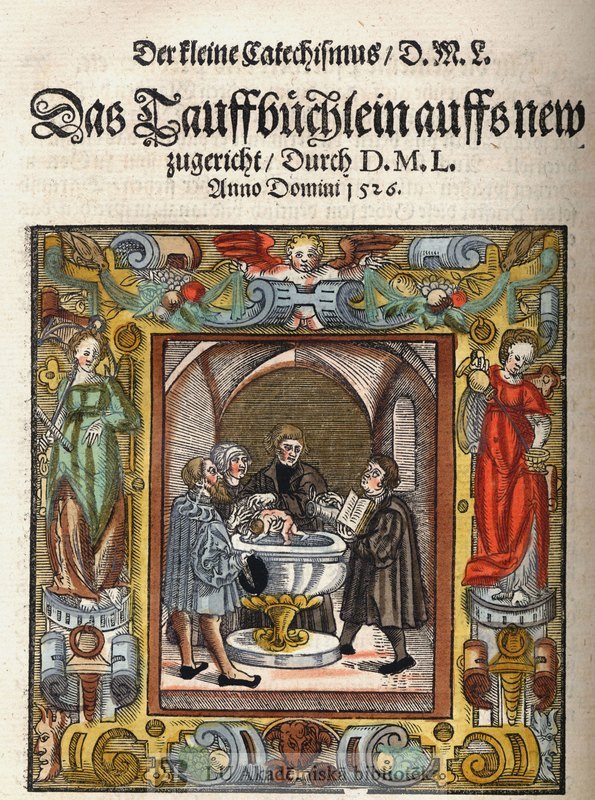 Der kleine Catechismus / D. M. L.
Das Tauffbüchlein auffs new
zugericht / Durch D. M. L.
Anno Domini 1526.
LU Akadēmiskā bibliotēka